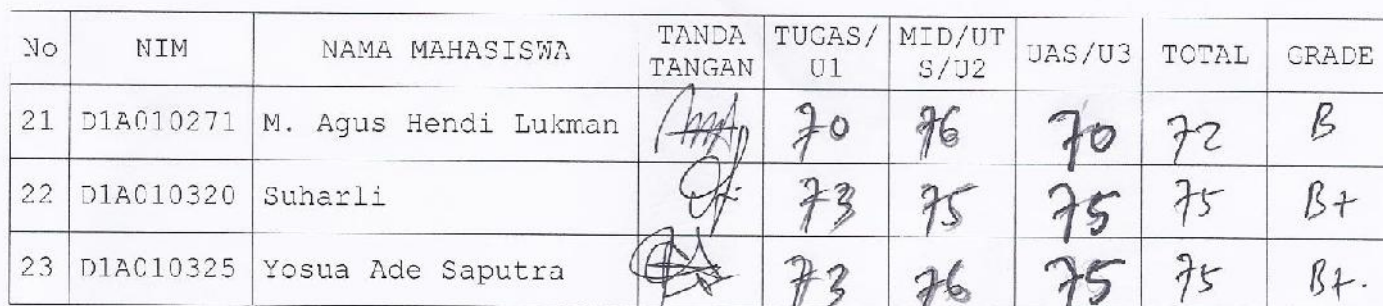 No NIM NAMA MAHASISWA TANDA TANGAN TUGAS/U1 MID/UTS/U2 UAS/U3 TOTAL GRADE
21 D1A010271 M. Agus Hendi Lukman 70 76 70 72 B
22 D1A010320 Suharli 73 75 75 75 B+
23 D1A010325 Yosua Ade Saputra 73 76 75 75 B+.